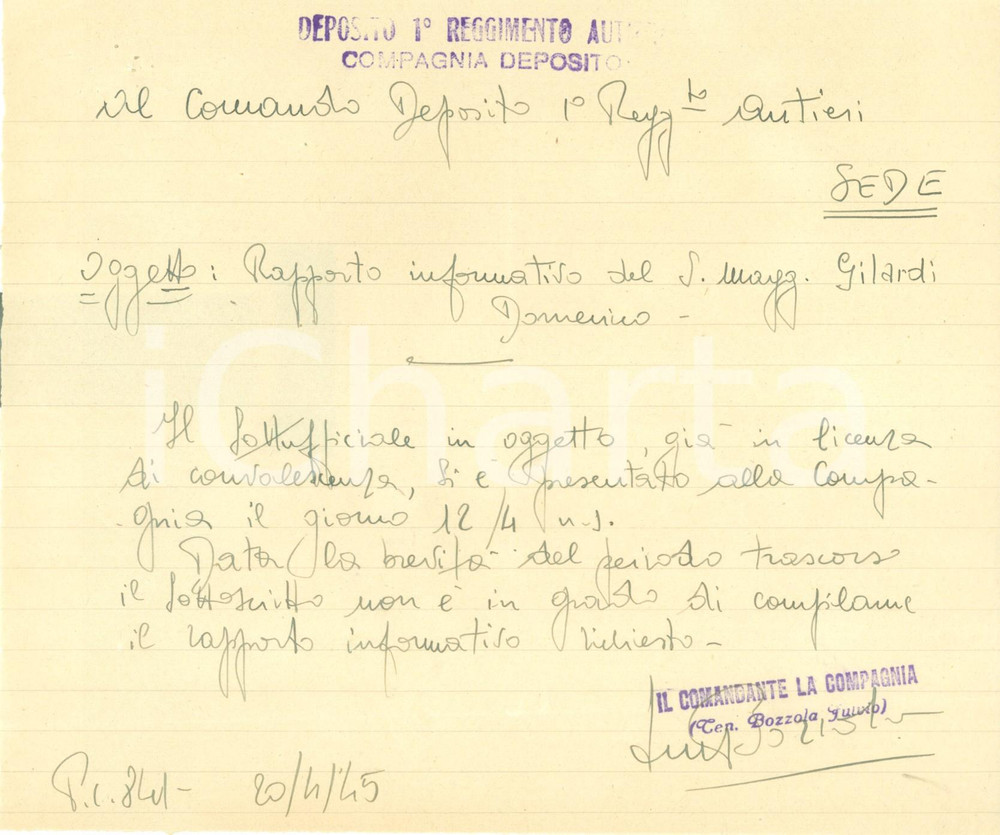 DEPOSITO 1° REGGIMENTO AUTIERI
COMPAGNIA DEPOSITO
Al Comando Deposito 1° Regg.to Autieri
SEDE
Oggetto: Rapporto informativo del S. Magg. Gilardi
Domenico -
Il Sottufficiale in oggetto, già in licenza
di convalescenza, si è presentato alla Compa-
gnia il giorno 12/4 u.s.
Data la brevità del periodo trascorso
il sottoscritto non è in grado di compilarne
il rapporto informativo richiesto -
IL COMANDANTE LA COMPAGNIA
(Ten. Bozzola Fulvio)
P.c. 841 - 20/4/45
iCharta